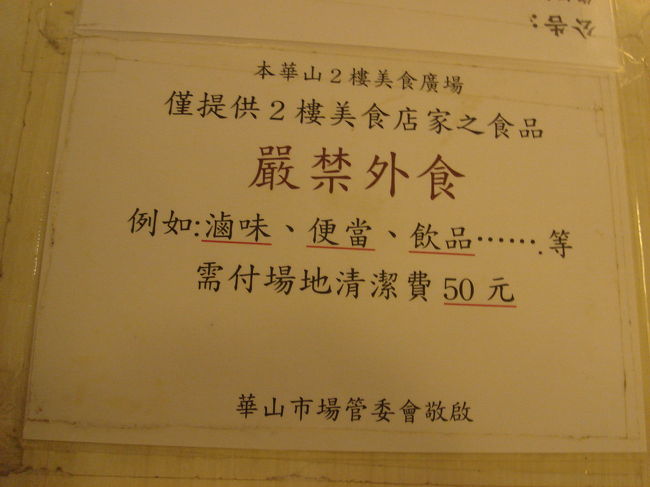 公告：
本華山2樓美食廣場
僅提供2樓美食店家之食品
嚴禁外食
例如:滷味、便當、飲品⋯⋯.等
需付場地清潔費50元
華山市場管委會敬啟